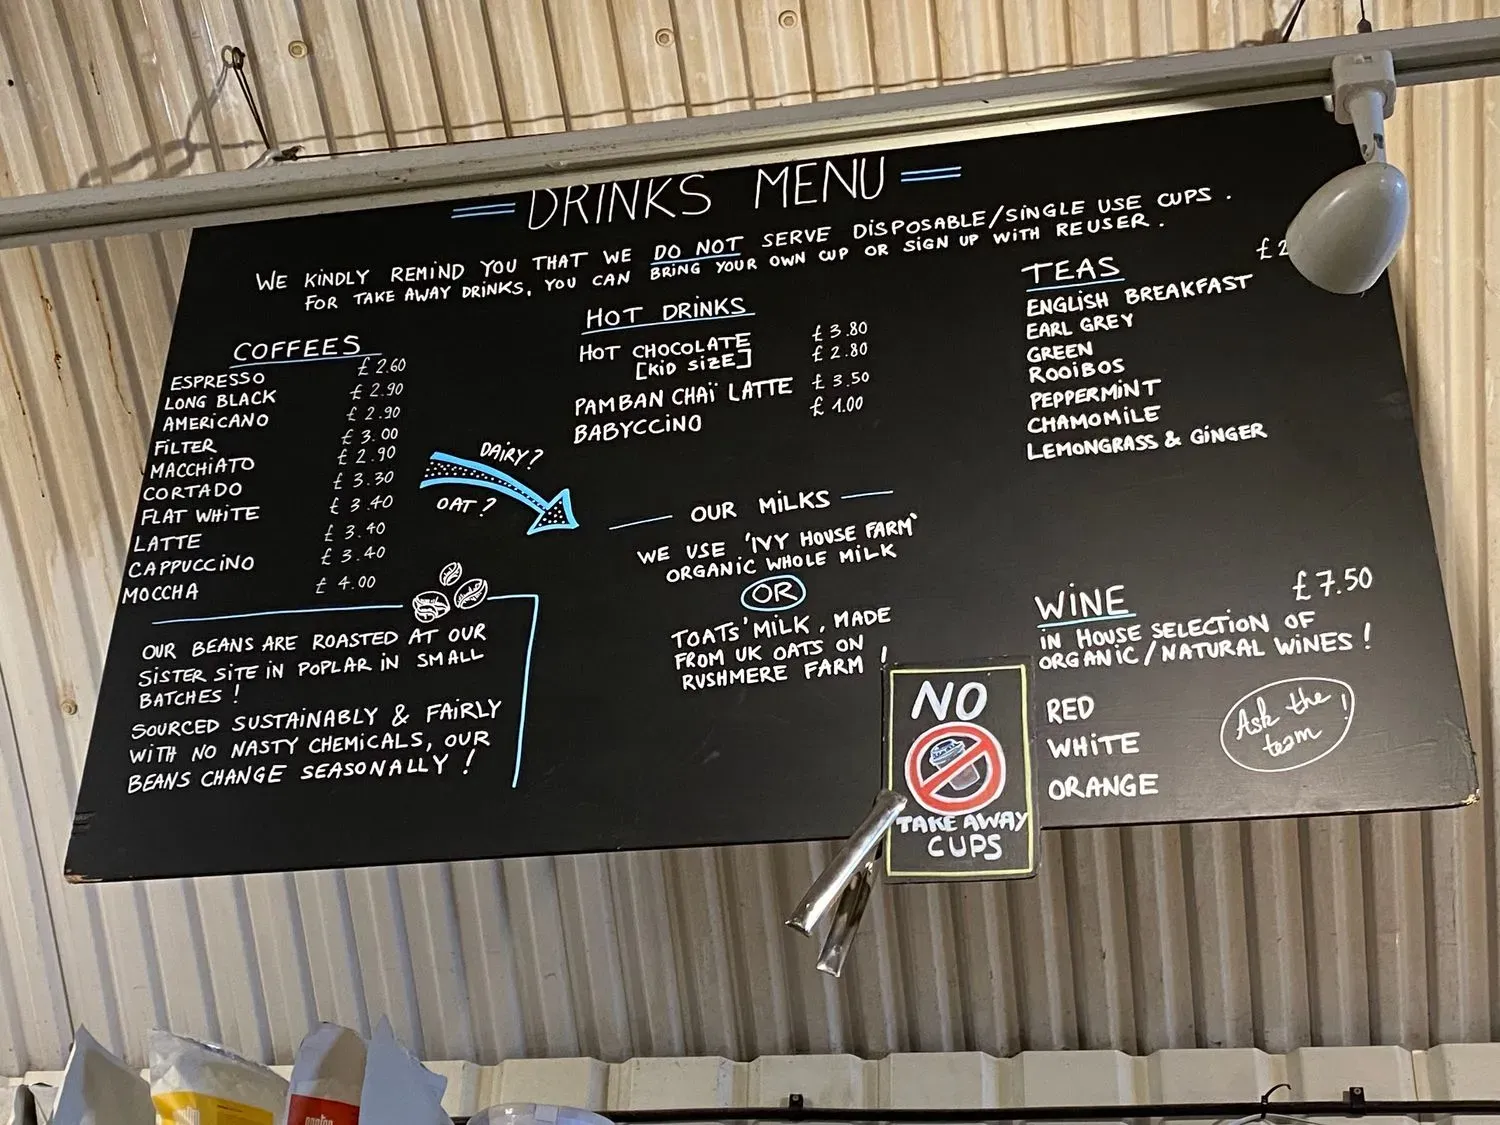 DRINKS MENU
WE KINDLY REMIND YOU THAT WE DO NOT SERVE DISPOSABLE/SINGLE USE CUPS.
FOR TAKE AWAY DRINKS, YOU CAN BRING YOUR OWN CUP OR SIGN UP WITH REUSER.
COFFEES
ESPRESSO £2.60
LONG BLACK £2.90
AMERICANO £2.90
FILTER £3.00
MACCHIATO £2.90
CORTADO £3.30
FLAT WHITE £3.40
LATTE £3.40
CAPPUCCINO £3.40
MOCCHA £4.00
DAIRY?
OAT?
OUR BEANS ARE ROASTED AT OUR
SISTER SITE IN POPLAR IN SMALL
BATCHES!
SOURCED SUSTAINABLY & FAIRLY
WITH NO NASTY CHEMICALS, OUR
BEANS CHANGE SEASONALLY!
HOT DRINKS
HOT CHOCOLATE £3.80
[KID SIZE] £2.80
PAMBAN CHAÏ LATTE £3.50
BABYCCINO £1.00
OUR MILKS
WE USE 'IVY HOUSE FARM'
ORGANIC WHOLE MILK
OR
TOATS' MILK, MADE
FROM UK OATS ON
RUSHMERE FARM!
TEAS
ENGLISH BREAKFAST
EARL GREY
GREEN
ROOIBOS
PEPPERMINT
CHAMOMILE
LEMONGRASS & GINGER
WINE £7.50
IN HOUSE SELECTION OF
ORGANIC/NATURAL WINES!
RED
WHITE
ORANGE
Ask the
team!
NO
TAKE AWAY
CUPS